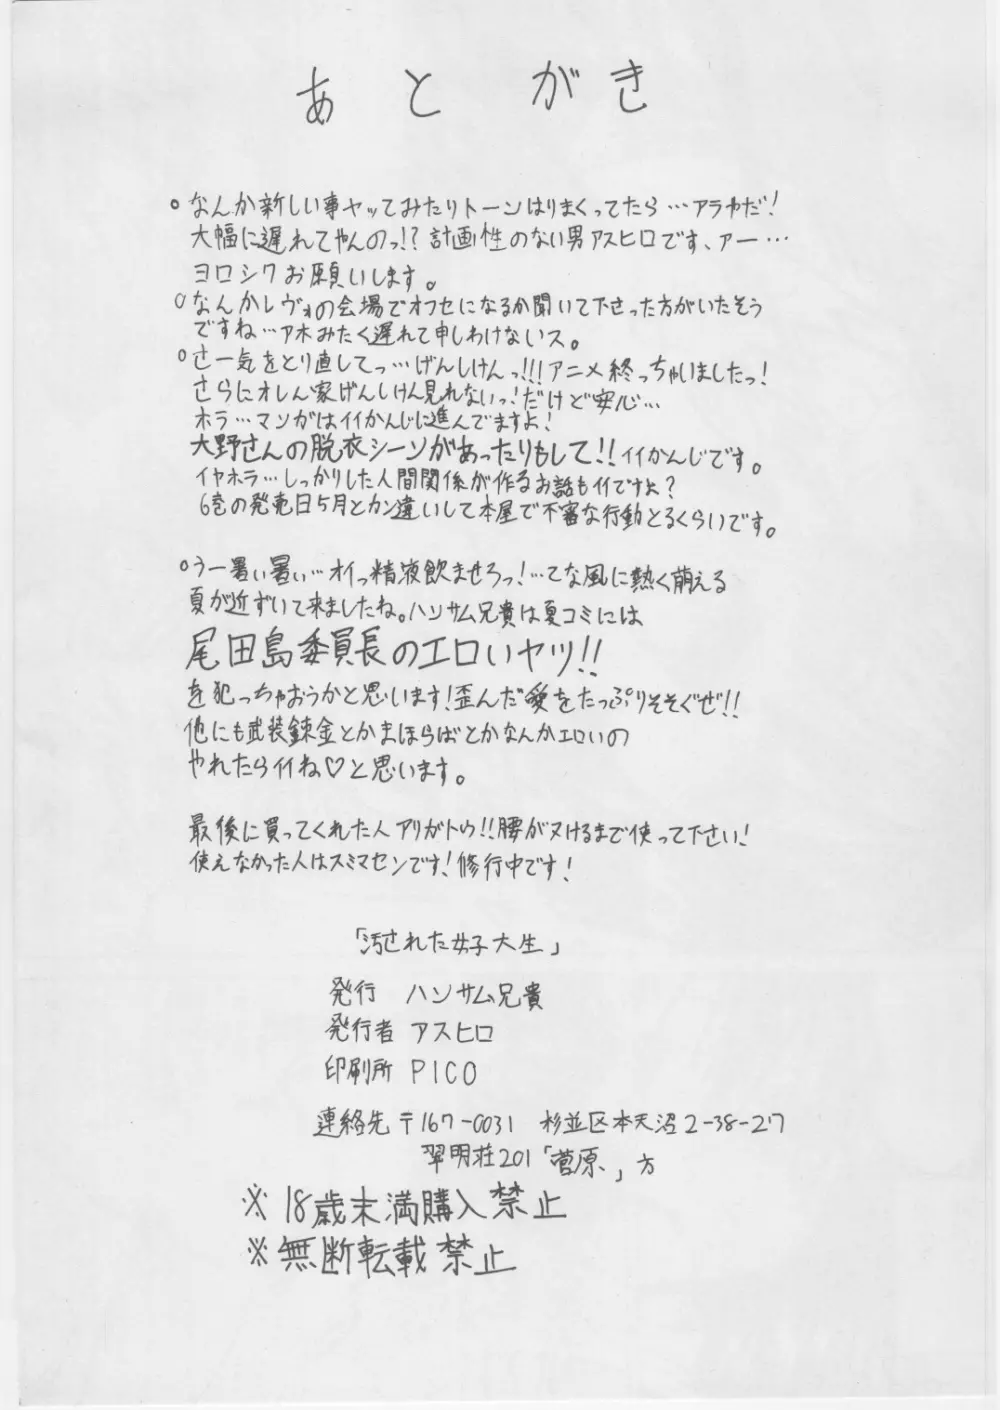 あとがき
○なんか新しい事ヤッてみたりトーンはりまくってたら…アラヤだ!
大幅に遅れてやんのっ!?計画性のない男アスヒロです、アー…
ヨロシクお願いします。
○なんかレヴォの会場でオフセになるか聞いて下さった方がいたそう
ですね…アホみたく遅れて申しわけないス。
○さー気をとり直してっ…げんしけんっ!!!アニメ終っちゃいましたっ!
さらにオレん家げんしけん見れないっ!だけど安心…
ホラ…マンガはイイかんじに進んでますよ!
大野さんの脱衣シーンがあったりもして!!イイかんじです。
イヤホラ…しっかりした人間関係が作るお話もイイですよ?
6巻の発売日5月とカン違いして本屋で不審な行動とるくらいです。
○うー暑い暑い…オイっ精液飲ませろっ!…てな風に熱く萌える
夏が近ずいて来ましたね。ハンサム兄貴は夏コミには
尾田島委員長のエロいヤツ!!
を犯っちゃおうかと思います!歪んだ愛をたっぷりそそぐぜ!!
他にも武装錬金とかまほらばとかなんかエロいの
やれたらイイね♡と思います。
最後に買ってくれた人アリがトウ!!腰がヌけるまで使って下さい!
使えなかった人はスミマセンです!修行中です!
「汚された女子大生」
発行 ハンサム兄貴
発行者 アスヒロ
印刷所 PICO
連絡先 〒167-0031 杉並区本天沼2-38-27
翠明荘201「菅原」方
※18歳未満購入禁止
※無断転載禁止